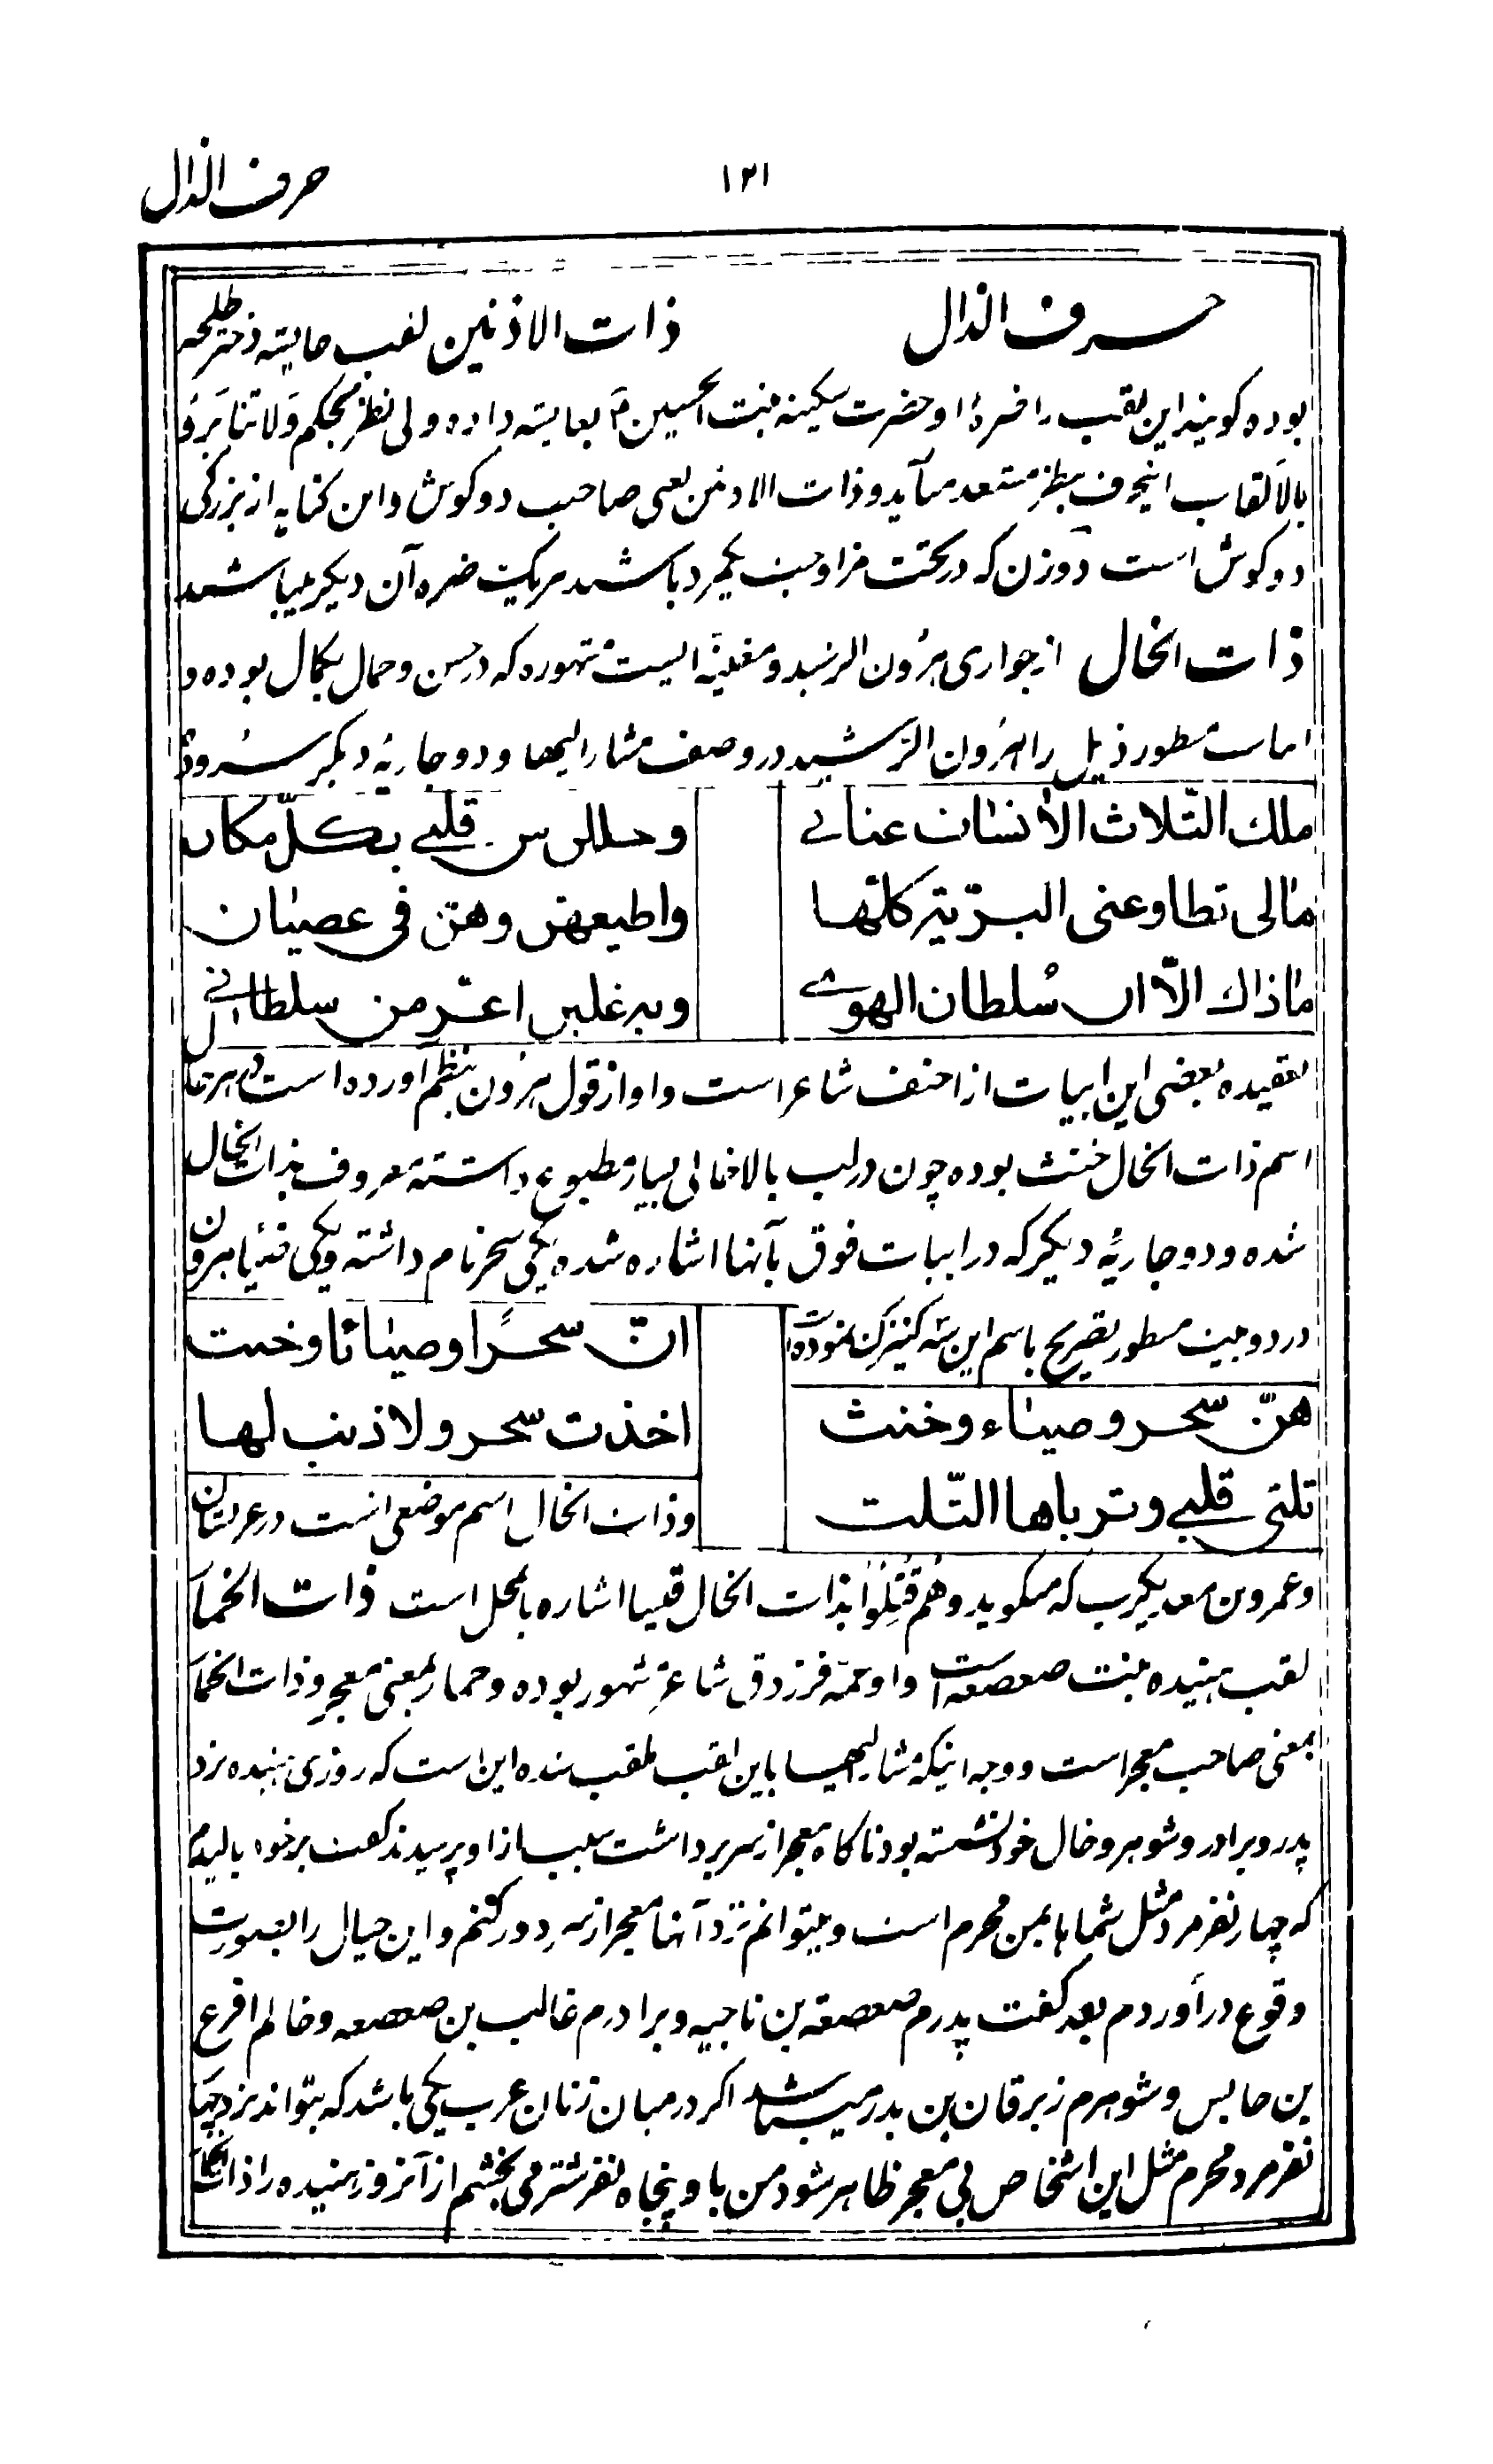 حرف الذال
۱۲۱
حرف الذال ذات الاذنین لقب عایشه دختر طلحه
بوده کویند این لقب را ضرهٔ او حضرت سکینه بنت الحسین ع بعایشه داده ولی نظر بحکم وَلا تَنابَزوُ
بالاَلقاب اینحرف بنظر مستبعد میآید و ذات الاذنین یعنی صاحب دو کوش و این کنایه از بزرکی
دو کوش است دو زن که در تحت مزاوجت یکمرد باشند هر یک ضره آن دیکر میباشد
ذات الخال از جواری هرون الرشید و مغنیهٔ ایست مشهوره که در حسن و جمال بکمال بوده و
ابیات مسطور ذیل را هرون الرشید در وصف مشار الیها و دو جاریهٔ دیکر سروده
ملك الثّلاث الأنسات عنانے وحللن من قلبے بكلّ مكان
مالى تطاوعنى البریّة كلّها واطیعهنّ وهنّ فى عصیان
ماذاك الّا انّ سُلطان الهوے وبه غلبن اعزّ من سلطانے
بعقیده بعضی این ابیات از احنف شاعر است و او از قول هرون بنظم آورده است در هر حال
اسم ذات الخال خنث بوده چون در لب بالا خالی بسیار مطبوع داشته معروف بذات الخال
شده و دو جاریهٔ دیکر که در ابیات فوق بآنها اشاره شده یکی سحر نام داشته و یکی ضیا هرون
در دو بیت مسطور تصریح باسم این سه کنیزک نموده انّ سحرًا وضیائا وخنث
هنّ سحر وضیاء وخنث اخذت سحر ولا ذنب لها
ثلثى قلبے وترباها الثّلث وذات الخال اسم موضعی است در عربستان
و عمرو بن معدیکرب که میکوید وهُم قُتِلُوا بذات الخال قیسا اشاره بانمحل است ذات الخمار
لقب هنیده بنت صعصعه است و او عمه فرزدق شاعر مشهور بوده و خمار بمعنی معجر و ذات الخمار
بمعنی صاحب معجر است و وجه اینکه مشار الیها باین لقب ملقب شده این است که روزی هنیده نزد
پدر و برادر و شوهر و خال خود نشسته بود ناکاه معجر از سر برداشت سبب از او پرسیدند کفت بر خود بالیدم
که چهار نفر مرد مثل شماها بمن محرم است و میتوانم نزد آنها معجر از سر دور کنم و این خیال را بصورت
وقوع در آوردم بعد کفت پدرم صعصعة بن ناجیه و برادرم غالب بن صعصعه و خالم اقرع
بن حابس و شوهرم زبرقان بن بدر میباشد اکر در میان زنان عرب یکی باشد که بتواند نزد چهار
نفر مرد محرم مثل این اشخاص بی معجر ظاهر شود من باو پنجاه نفر شتر می بخشم از آنروز هنیده را ذات الخمار